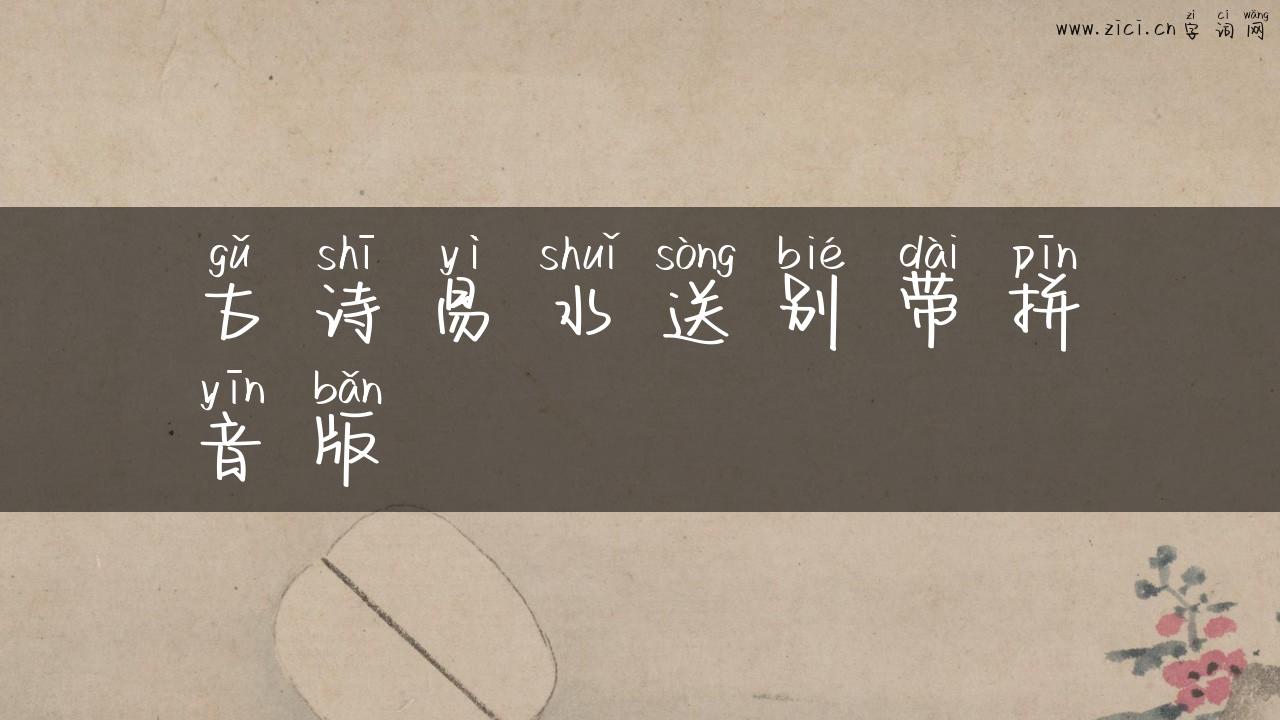 zì cí wǎng
www.zici.cn 字词网
gǔ shī yì shuǐ sòng bié dài pīn
古诗易水送别带拼
yīn bǎn
音版